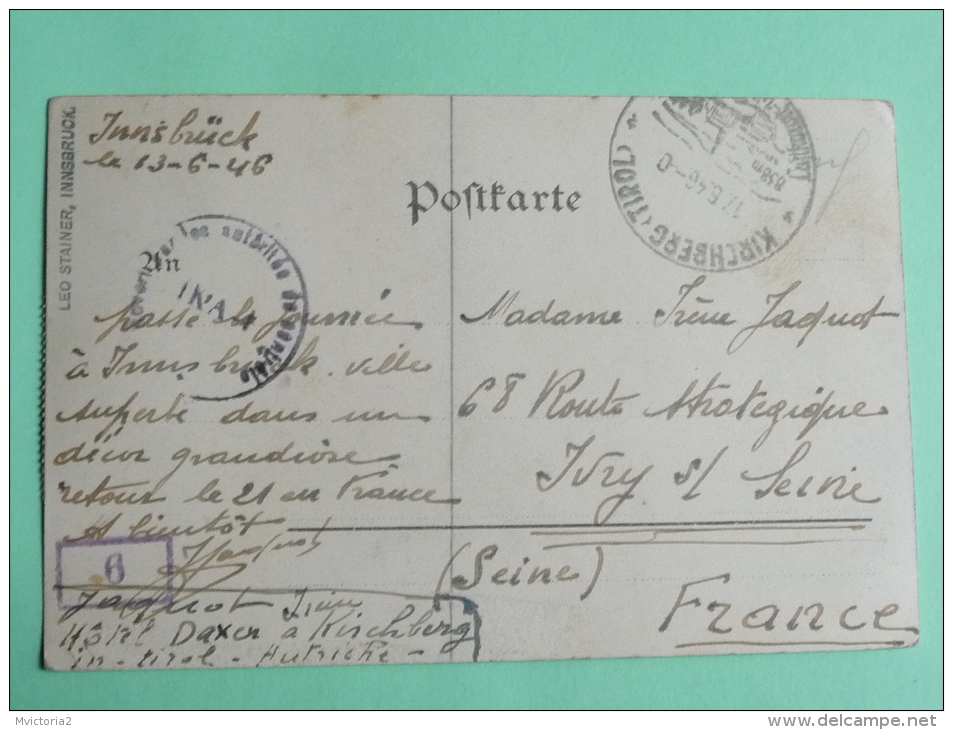 LEO STAINER, INNSBRUCK.
Innsbrück
le 13-6-46
Postkarte
An
KIRCHBERG (TIROL)
838m
17.6.46-0
par les autorités
passé la journée
à Innsbruck. ville
superbe dans un
décor grandiose
retour le 21 en France
A bientôt
Jaquot
6
Jaquot Irène
Hôtel Daxer à Kirchberg
in-tirol - Autriche -
Madame Irène Jaquot
68 Route Strategique
Ivry s/ Seine
(Seine)
France
Mvictoria2
www.delcampe.net